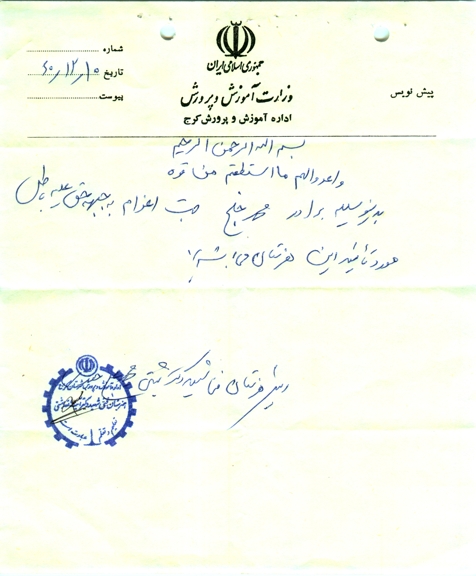 جمهوری اسلامی ایران
وزارت آموزش و پرورش
اداره آموزش و پرورش کرج
پیش نویس
شماره
تاریخ ۶۰/۱۲/۱۰
پیوست
بسم الله الرحمن الرحیم
و اعدوا لهم ما استطعتم من قوه
بدینوسیله برادر محمد خلج جهت اعزام به جبهه حق علیه باطل
مورد تأیید این هنرستان می باشد.
رئیس هنرستان فنی شهید دکتر بهشتی